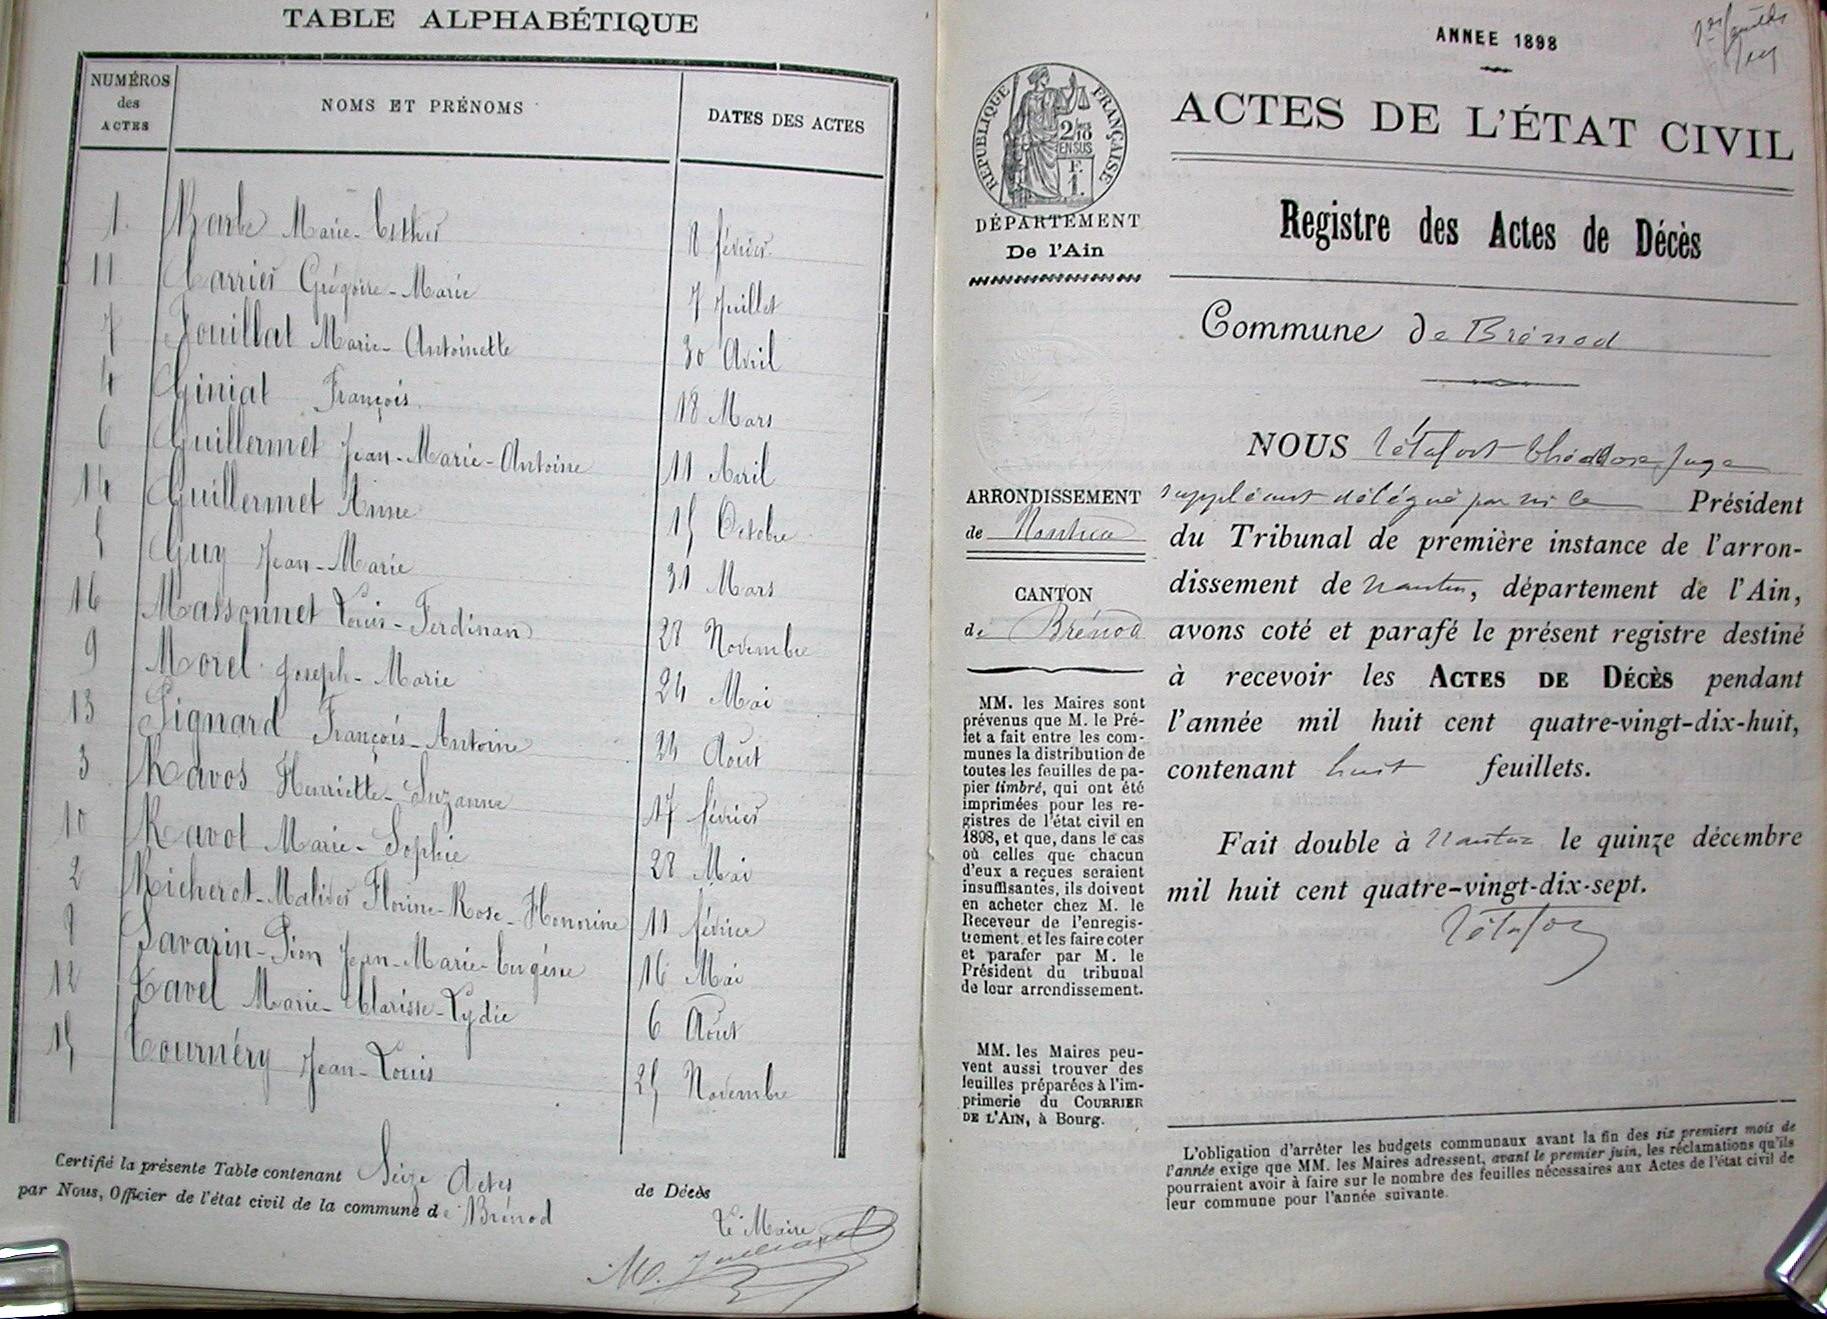 TABLE ALPHABÉTIQUE
NUMÉROS des ACTES
NOMS ET PRÉNOMS
DATES DES ACTES
1 Barbe Marie-Esther 8 février
11 Carrier Grégoire-Marie 7 Juillet
7 Fouillat Marie-Antoinette 30 Avril
4 Giniat François 18 Mars
6 Guillermet Jean-Marie-Antoine 11 Avril
14 Guillermet Anne 15 Octobre
5 Guy Jean-Marie 31 Mars
16 Massonnet Louis-Ferdinan 28 Novembre
9 Morel Joseph-Marie 24 Mai
13 Pignard François-Antoine 24 Août
3 Ravos Henriette-Suzanne 17 février
10 Ravot Marie-Sophie 28 Mai
2 Richerot-Malivers Florine-Rose-Honorine 11 février
8 Savarin-Pion Jean-Marie-Eugène 16 Mai
12 Tavel Marie-Clarisse-Lydie 6 Août
15 Tournéry Jean-Louis 25 Novembre
Certifié la présente Table contenant Seize Actes de Décès
par Nous, Officier de l'état civil de la commune de Brénod
Le Maire
ANNÉE 1898
RÉPUBLIQUE FRANÇAISE
2/10
EN SUS
F.
1.
DÉPARTEMENT
De l'Ain
ACTES DE L'ÉTAT CIVIL
Registre des Actes de Décès
Commune de Brénod
ARRONDISSEMENT
de Nantua
CANTON
de Brénod
MM. les Maires sont
prévenus que M. le Pré-
fet a fait entre les com-
munes la distribution de
toutes les feuilles de pa-
pier timbré, qui ont été
imprimées pour les re-
gistres de l'état civil en
1898, et que, dans le cas
où celles que chacun
d'eux a reçues seraient
insuffisantes, ils doivent
en acheter chez M. le
Receveur de l'enregis-
trement, et les faire coter
et parafer par M. le
Président du tribunal
de leur arrondissement.
MM. les Maires peu-
vent aussi trouver des
feuilles préparées à l'im-
primerie du COURRIER
DE L'AIN, à Bourg.
NOUS Juge
suppléant délégué par Mr le Président
du Tribunal de première instance de l'arron-
dissement de Nantua, département de l'Ain,
avons coté et parafé le présent registre destiné
à recevoir les ACTES DE DÉCÈS pendant
l'année mil huit cent quatre-vingt-dix-huit,
contenant huit feuillets.
Fait double à Nantua le quinze décembre
mil huit cent quatre-vingt-dix-sept.
L'obligation d'arrêter les budgets communaux avant la fin des six premiers mois de
l'année exige que MM. les Maires adressent, avant le premier juin, les réclamations qu'ils
pourraient avoir à faire sur le nombre des feuilles nécessaires aux Actes de l'état civil de
leur commune pour l'année suivante.